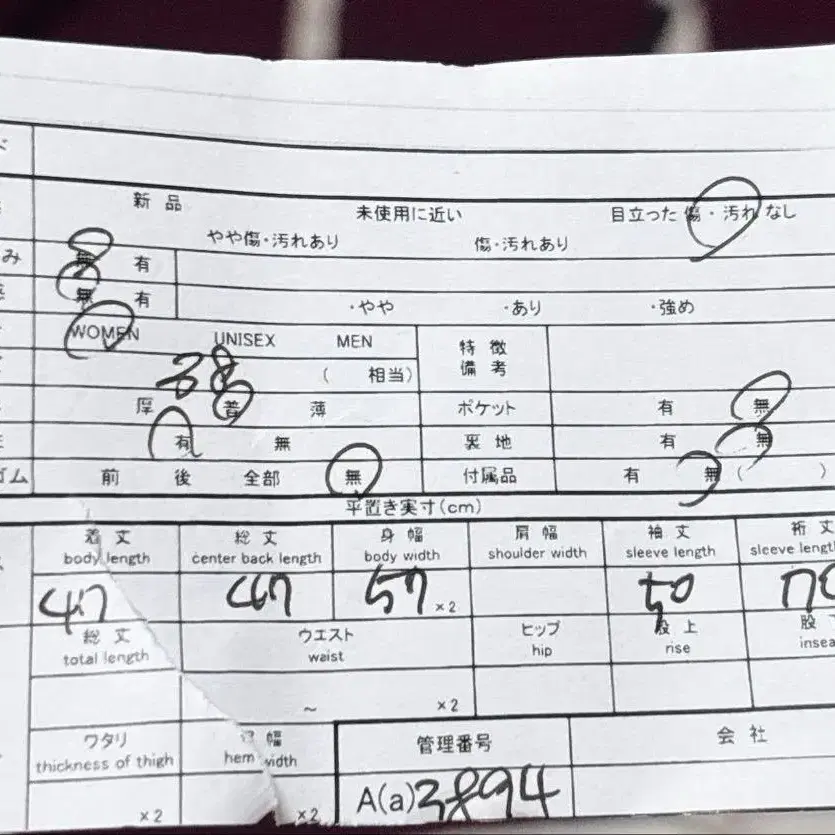 新品 未使用に近い 目立った傷・汚れなし
やや傷・汚れあり 傷・汚れあり
み 無 有
無 有 ・やや ・あり ・強め
WOMEN UNISEX MEN 特徴
備考
38 (相当)
厚 普 薄 ポケット 有 無
有 無 裏地 有 無
ゴム 前 後 全部 無 付属品 有 無 ( )
平置き実寸(cm)
着丈 総丈 身幅 肩幅 袖丈 裄丈
body length center back length body width shoulder width sleeve length sleeve length
47 47 57 ×2 50
総丈 ウエスト ヒップ 股上 股
total length waist hip rise insea
~ ×2
ワタリ 幅 管理番号 会社
thickness of thigh hem width
×2 ×2 A(a) 3894